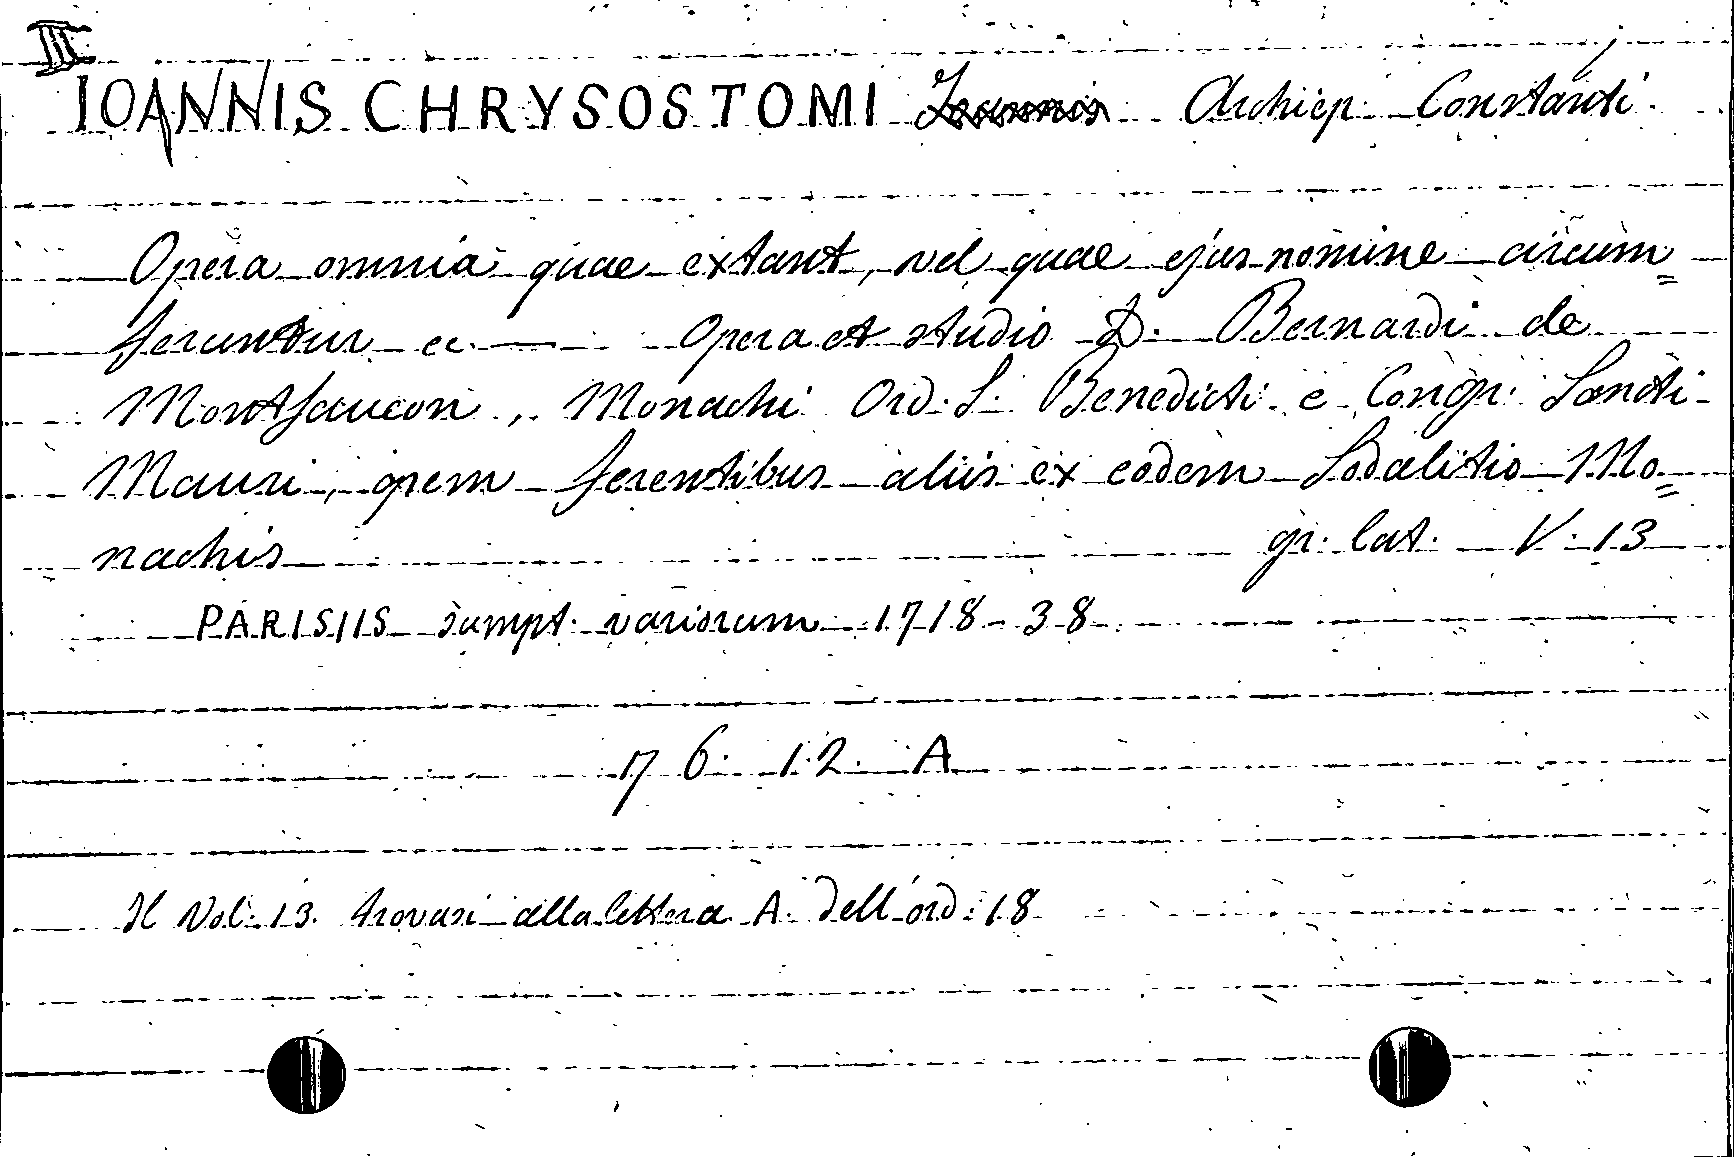 III
IOANNIS CHRYSOSTOMI Archiep. Constanti.
Opera omnia quae extant, vel quae ejus nomine circum=
feruntur ec. — Opera et studio D. Bernardi de
Montfaucon, Monachi Ord. S. Benedicti e Congr. Sancti
Mauri, opem ferentibus aliis ex eodem Sodalitio Mo=
nachis gr. lat. V. 13
PARISIIS sumpt. variorum 1718-38
76. 12. A
Il Vol. 13. trovasi alla lettera A. dell'ord. 18